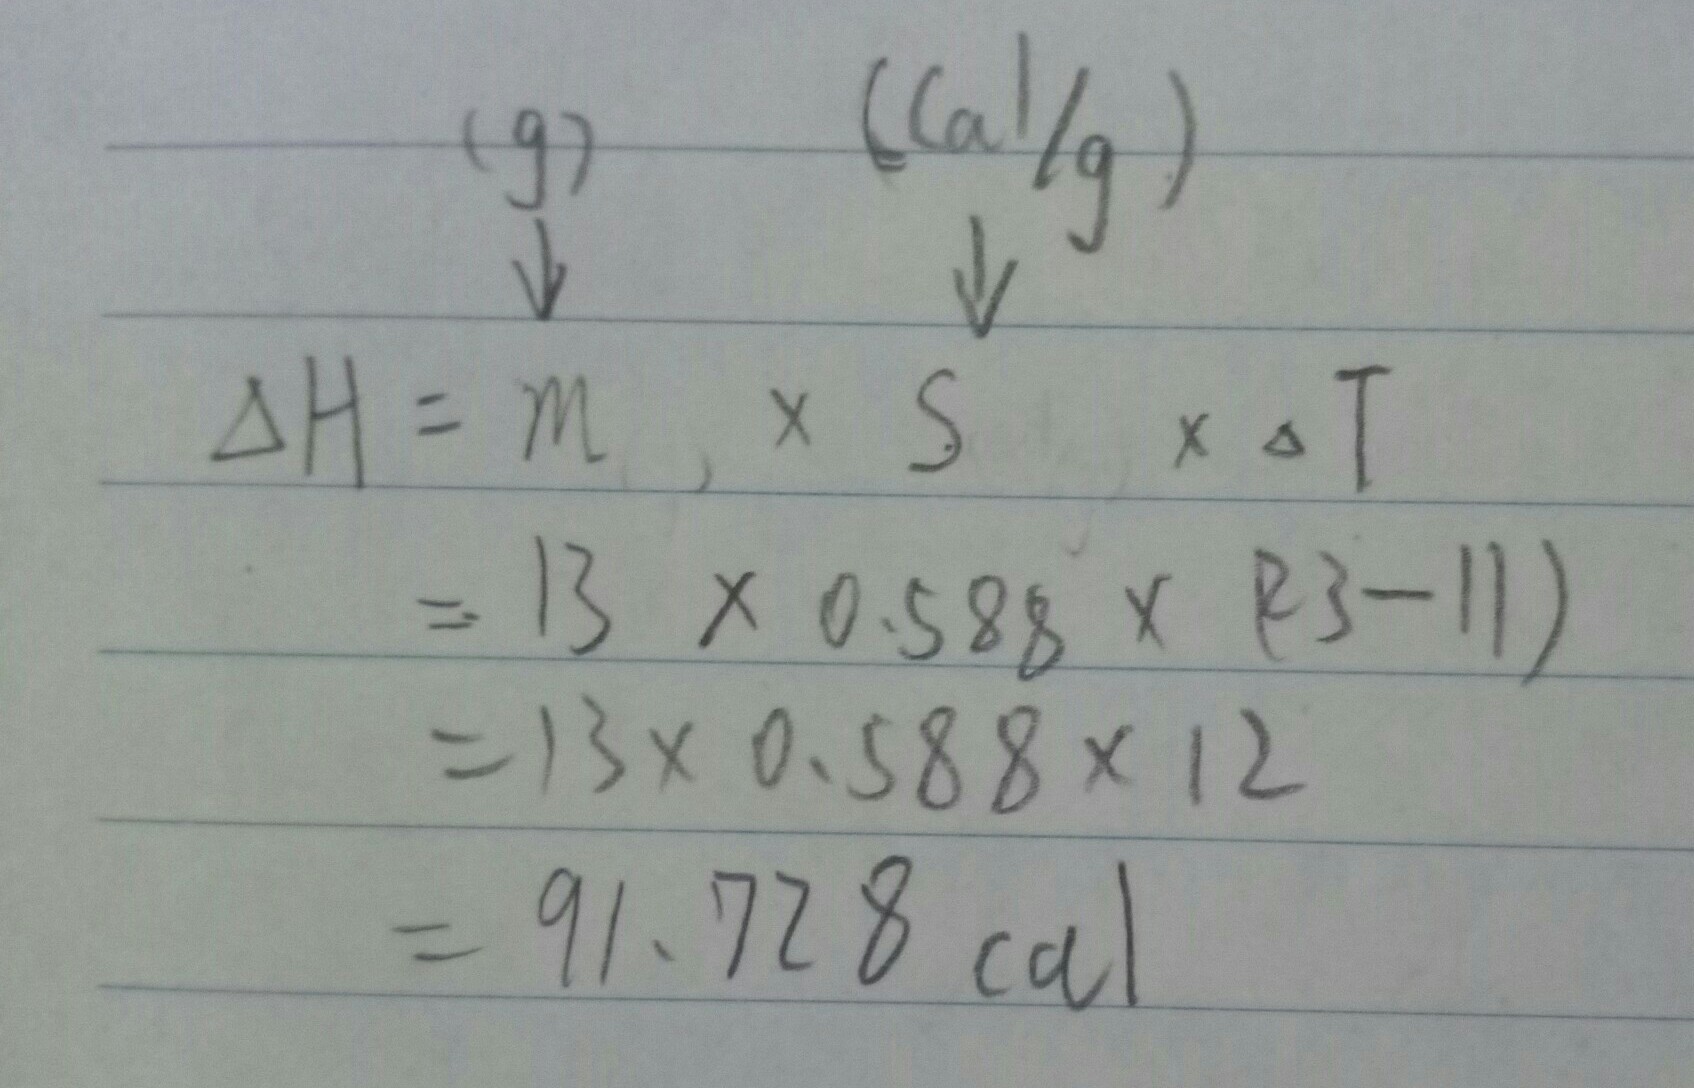 (g) (Cal/g)
↓ ↓
ΔH = m × S × ΔT
= 13 × 0.588 × (23-11)
= 13 × 0.588 × 12
= 91.728 cal